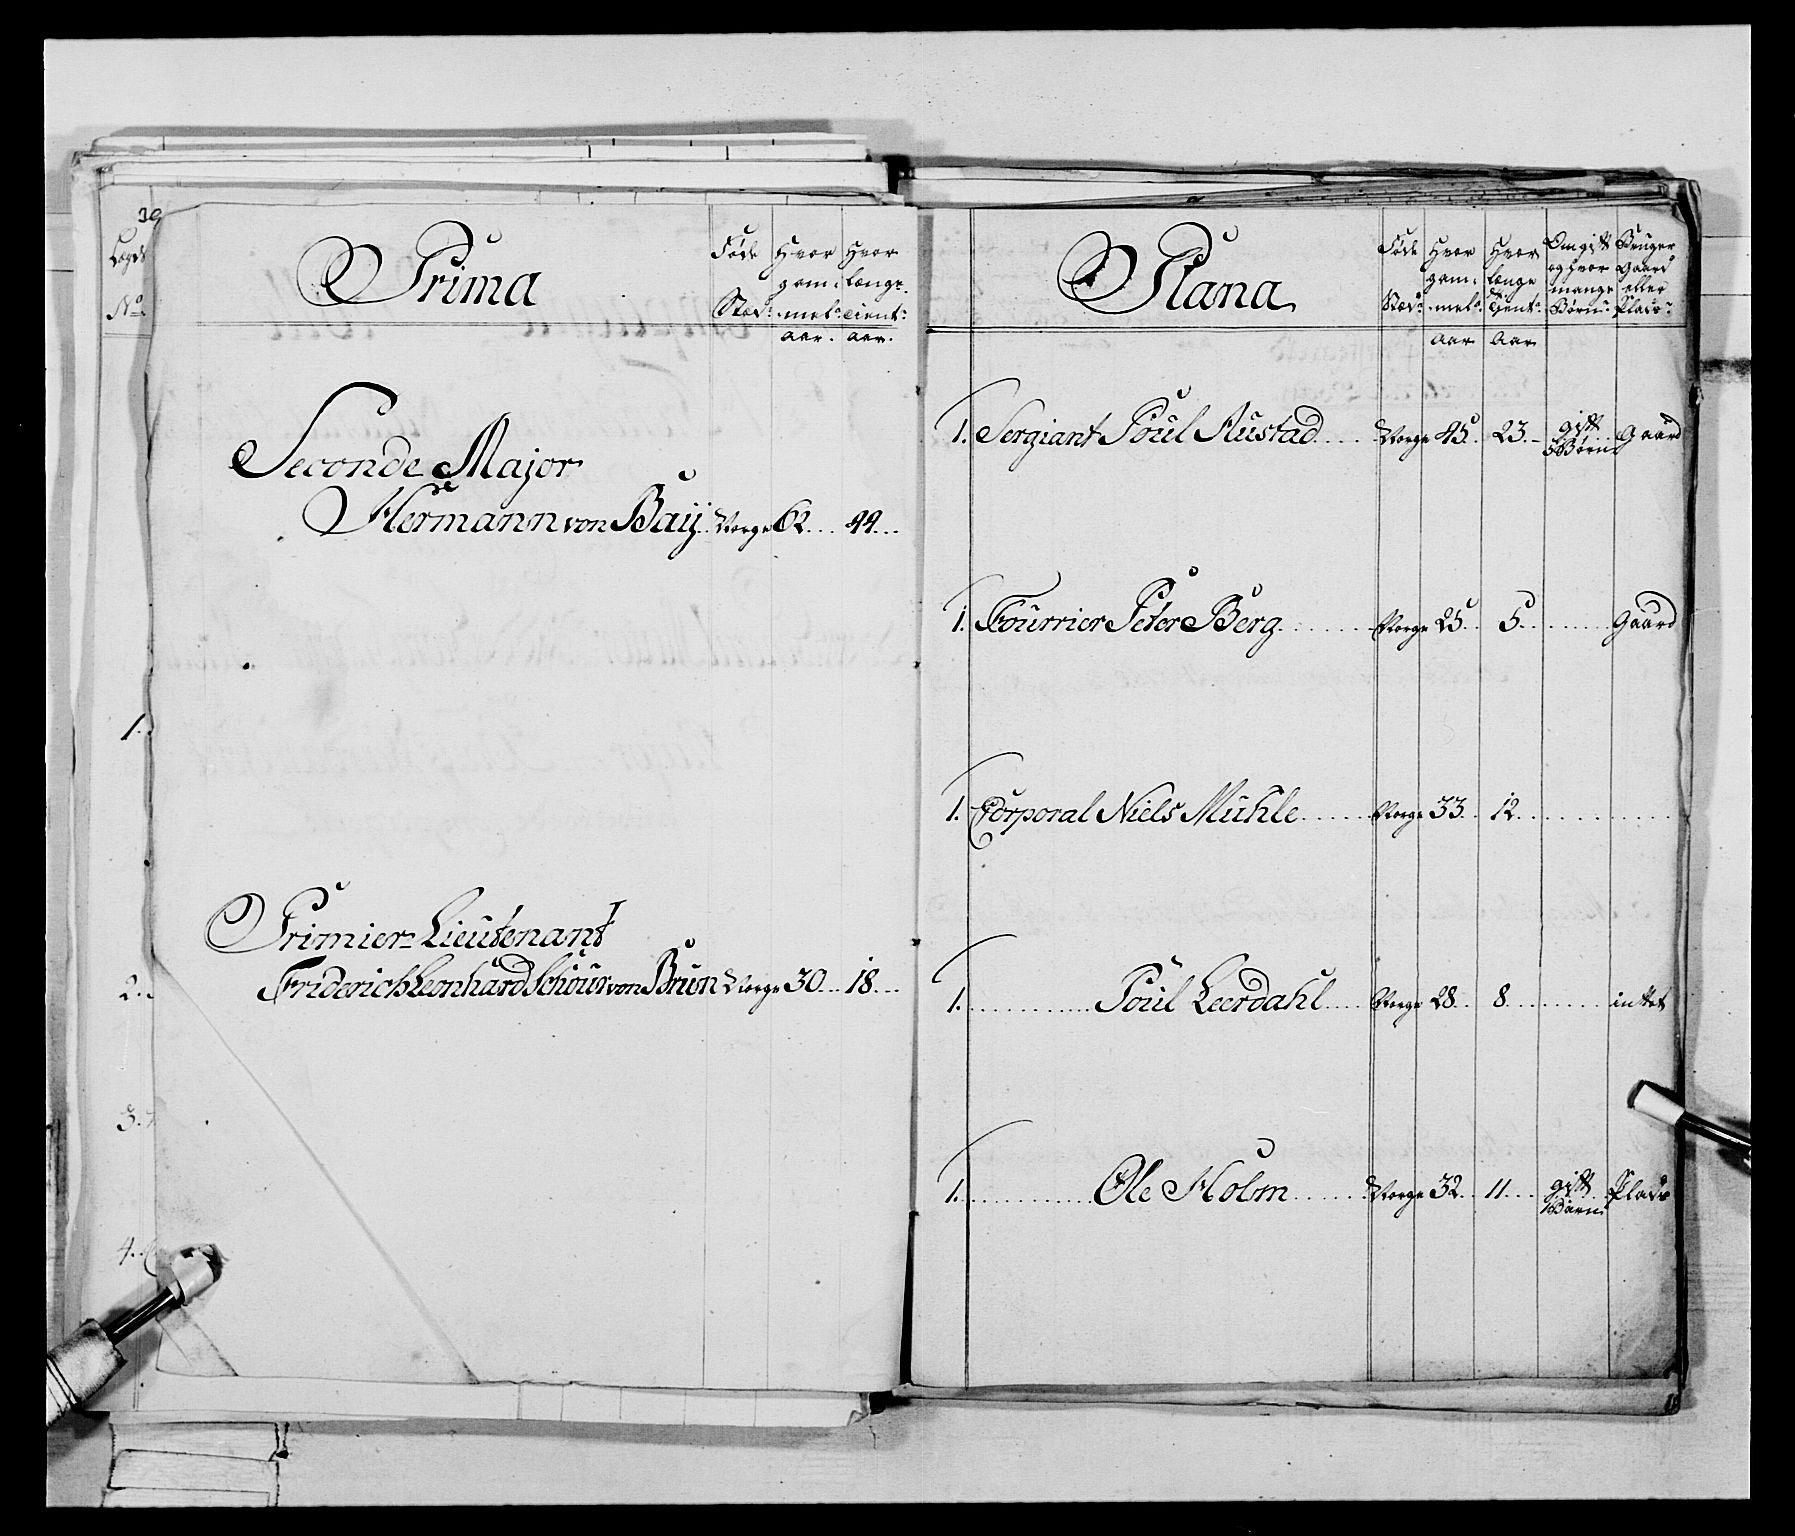 30
Lægds
No
Prima
Føde
Stæd:
Hvor
gam:
mel:
Aar.
Hvor
længe
tient:
Aar.
Seconde Major
Hermann von Baÿ Norge 62 44
1.
Primier=Lieutenant
Friderich Leonhard Schour von Brun Norge 30 18
2.
3.
4.
Plana
Føde
Stæd:
Hvor
gam:
mel:
Aar
Hvor
længe
tient:
Aar
Om gift
og hvor
mange
Børn:
Bruger
Gaard
eller
Plads:
1. Sergiant Poul Austad Norge 45 23 gift Gaard
Børn
1. Fourrier Peter Berg Norge 25 5 Gaard
1. Corporal Niels Muhle Norge 33 12
1. Poul Leerdahl Norge 28 8 intet
1. Ole Holm Norge 32 11 gift Plads
1 Barn